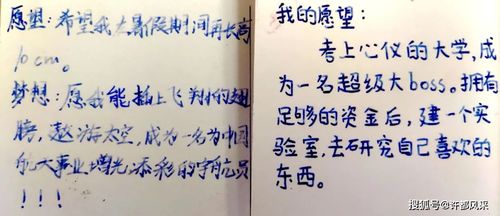 愿望：希望我大暑假期间再长高
10cm。
梦想：愿我能插上飞翔的翅
膀，遨游太空，成为一名为中国
航天事业增光添彩的宇航员
！！！
我的愿望：
考上心仪的大学，成
为一名超级大boss。拥有
足够的资金后，建一个实
验室，去研究自己喜欢的
东西。
搜狐号@许都风采